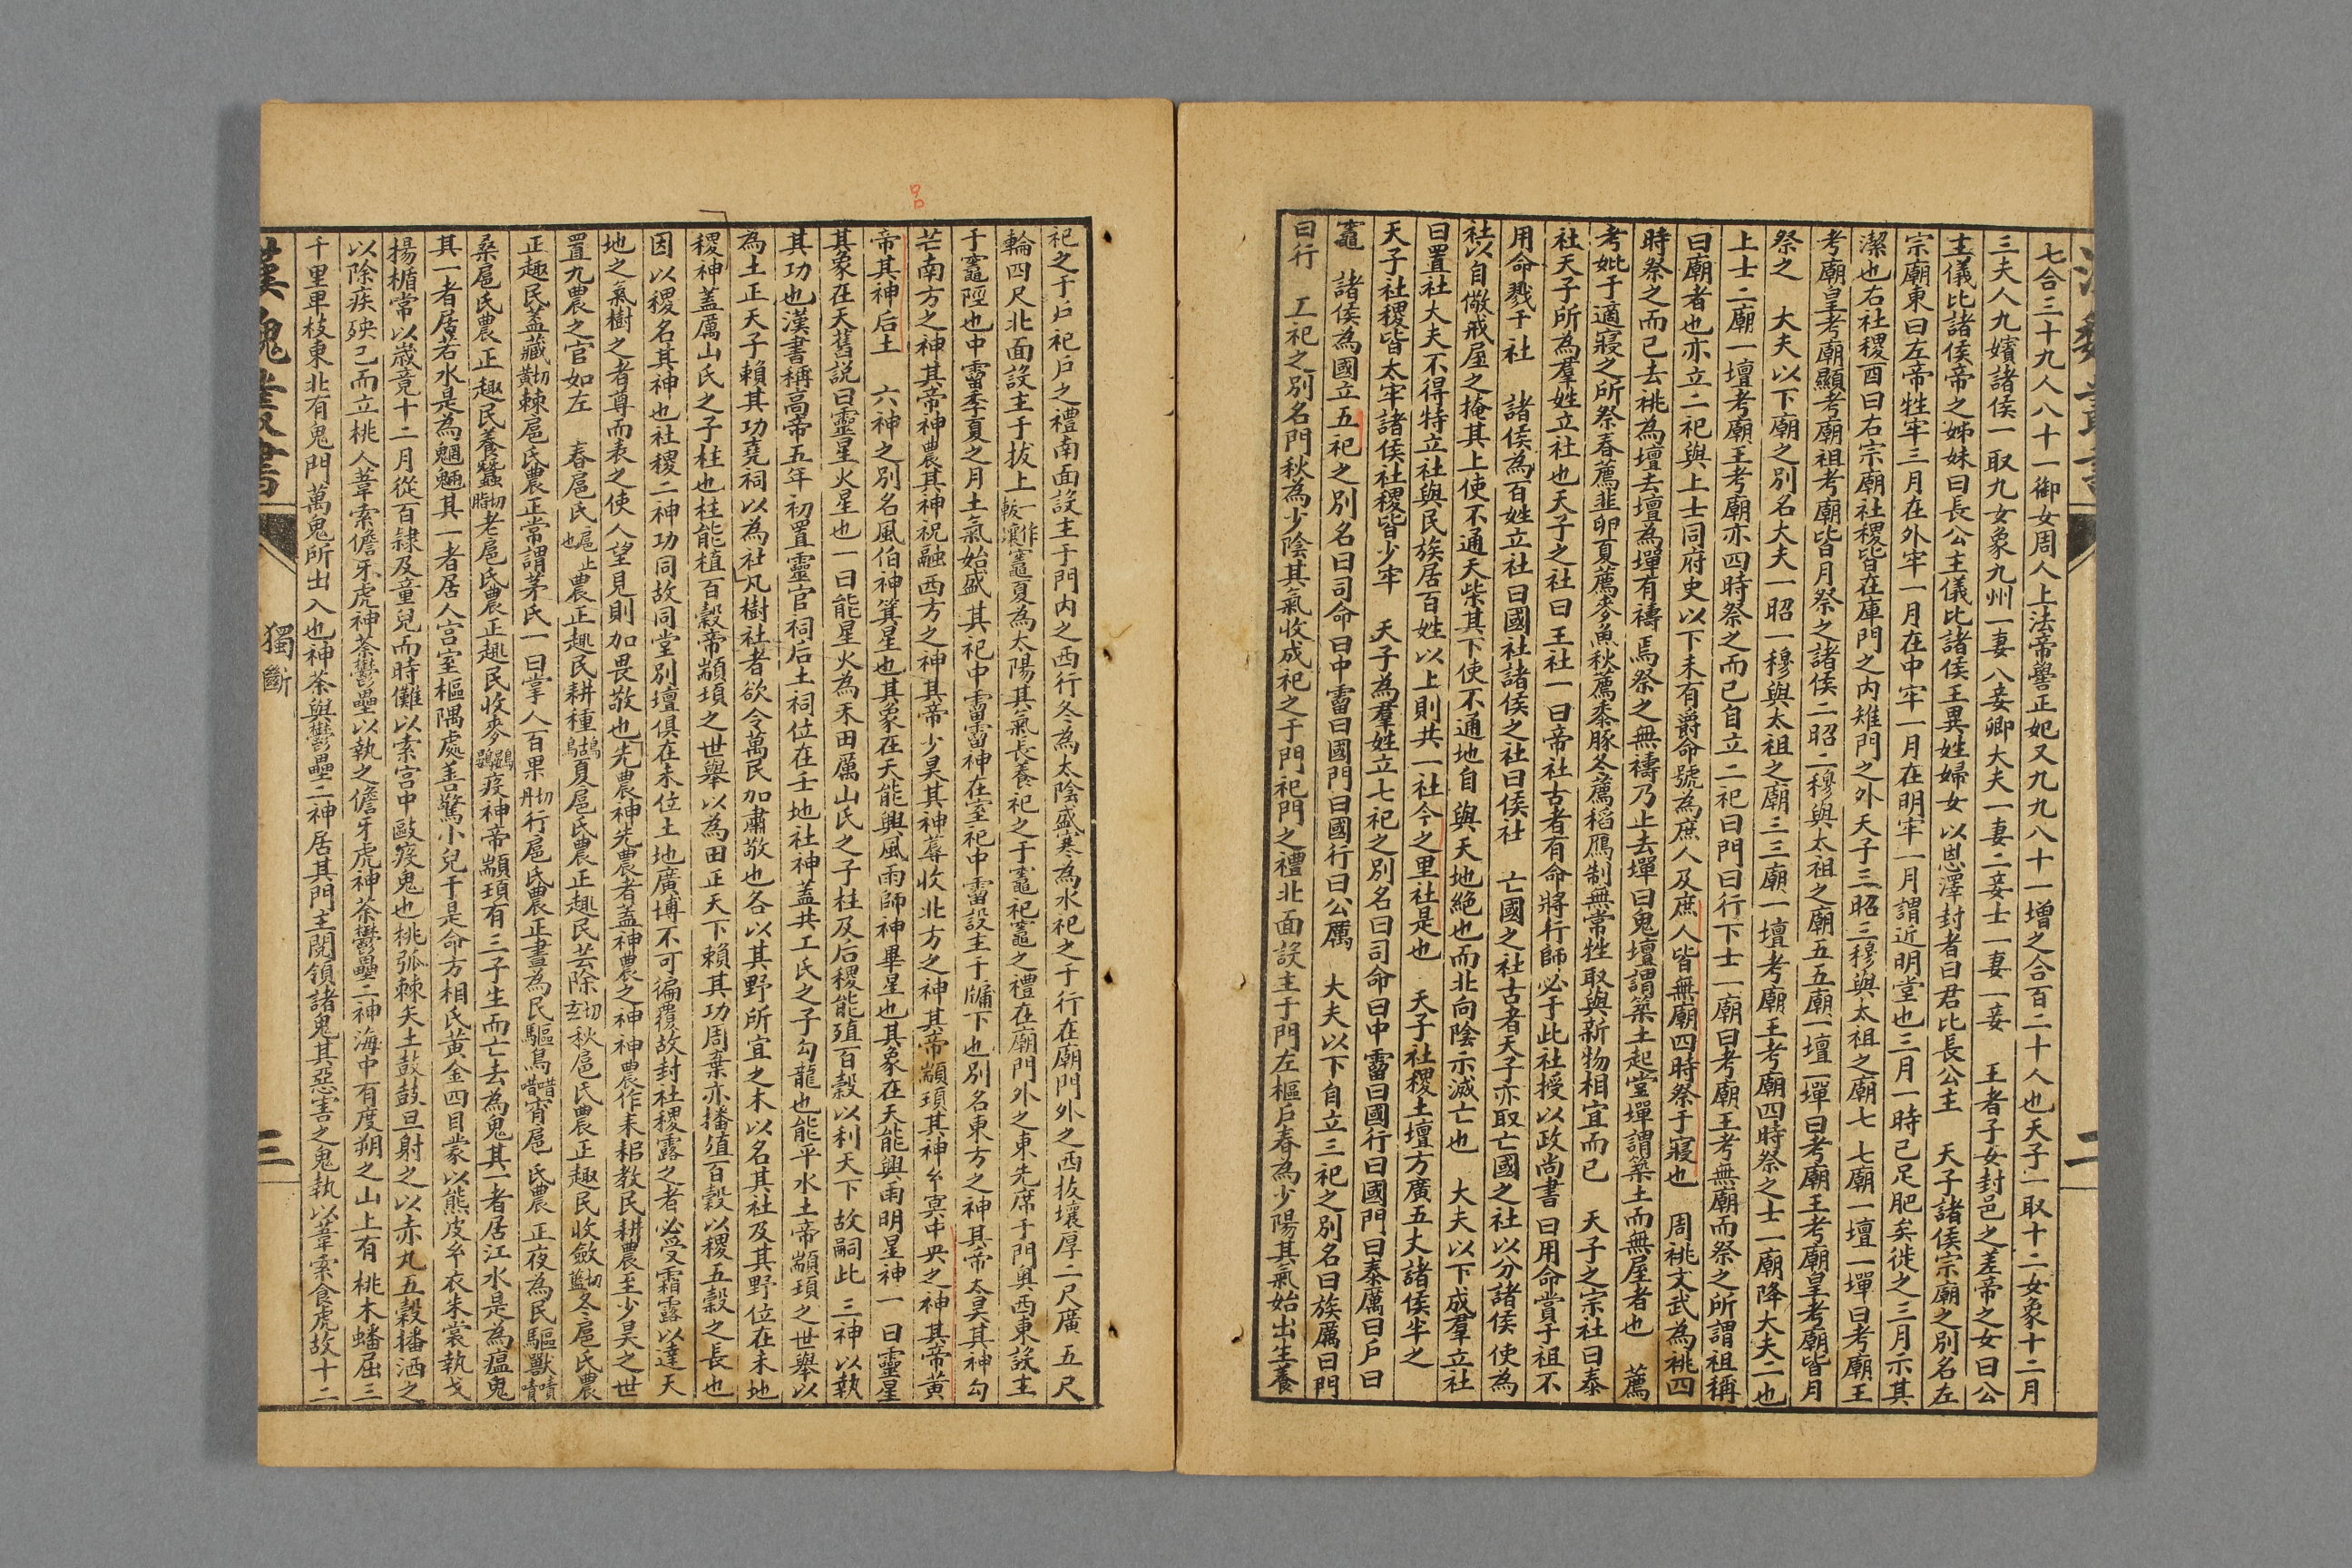 七合三十九人八十一御女周人上法帝嚳正妃又九九八十一增之合百二十人也天子一取十二女象十二月
三夫人九嬪諸侯一取九女象九州一妻八妾卿大夫一妻二妾士一妻一妾　王者子女封邑之差帝之女曰公
主儀比諸侯帝之姊妹曰長公主儀比諸侯王異姓婦女以恩澤封者曰君比長公主　天子諸侯宗廟之別名左
宗廟東曰左帝牲牢三月在外牢一月在中牢一月在明牢一月謂近明堂也三月一時已足肥矣徙之三月示其
潔也右社稷西曰右宗廟社稷皆在庫門之內雉門之外天子三昭三穆與太祖之廟七七廟一壇一墠曰考廟王
考廟皇考廟顯考廟祖考廟皆月祭之諸侯二昭二穆與太祖之廟五五廟一壇一墠曰考廟王考廟皇考廟皆月
祭之　大夫以下廟之別名大夫一昭一穆與太祖之廟三三廟一壇考廟王考廟四時祭之士一廟降大夫二也
上士二廟一壇考廟王考廟亦四時祭之而已自立二祀曰門曰行下士一廟曰考廟王考無廟而祭之所謂祖稱
曰廟者也亦立二祀與上士同府史以下未有爵命號為庶人及庶人皆無廟四時祭于寢也　周祧文武為祧四
時祭之而已去祧為壇去壇為墠有禱焉祭之無禱乃止去墠曰鬼壇謂築土起堂墠謂築土而無屋者也　薦
考妣于適寢之所祭春薦韭卵夏薦麥魚秋薦黍豚冬薦稻鴈制無常牲取與新物相宜而已　天子之宗社曰泰
社天子所為羣姓立社也天子之社曰王社一曰帝社古者有命將行師必于此社授以政尚書曰用命賞于祖不
用命戮于社　諸侯為百姓立社曰國社諸侯之社曰侯社　亡國之社古者天子亦取亡國之社以分諸侯使為
社以自儆戒屋之掩其上使不通天柴其下使不通地自與天地絶也而北向陰示滅亡也　大夫以下成羣立社
曰置社大夫不得特立社與民族居百姓以上則共一社今之里社是也　天子社稷土壇方廣五丈諸侯半之
天子社稷皆太牢諸侯社稷皆少牢　天子為羣姓立七祀之別名曰司命曰中霤曰國行曰國門曰泰厲曰戶曰
竈　諸侯為國立五祀之別名曰司命曰中霤曰國門曰國行曰公厲　大夫以下自立三祀之別名曰族厲曰門
曰行　五祀之別名門秋為少陰其氣收成祀之于門祀門之禮北面設主于門左樞戶春為少陽其氣始出生養
祀之于戶祀戶之禮南面設主于門內之西行冬為太陰盛寒為水祀之于行在廟門外之西拔壤厚二尺廣五尺
輪四尺北面設主于拔上竈夏為太陽其氣長養祀之于竈祀竈之禮在廟門外之東先席于門奧西東設主
于竈陘也中霤季夏之月土氣始盛其祀中霤霤神在室祀中霤設主于牖下也別名東方之神其帝太昊其神勾
芒南方之神其帝神農其神祝融西方之神其帝少昊其神蓐收北方之神其帝顓頊其神玄冥中央之神其帝黃
帝其神后土　六神之別名風伯神箕星也其象在天能興風雨師神畢星也其象在天能興雨明星神一曰靈星
其象在天舊說曰靈星火星也一曰能星火為禾田厲山氏之子柱及后稷能殖百穀以利天下故嗣此三神以執
其功也漢書稱高帝五年初置靈官祠后土祠位在壬地社神蓋共工氏之子勾龍也能平水土帝顓頊之世舉以
為土正天子賴其功堯祠以為社凡樹社者欲令萬民加肅敬也各以其野所宜之木以名其社及其野位在未地
稷神蓋厲山氏之子柱也柱能植百穀帝顓頊之世舉以為田正天下賴其功周棄亦播殖百穀以稷五穀之長也
因以稷名其神也社稷二神功同故同堂別壇俱在未位土地廣博不可徧覆故封社稷露之者必受霜露以達天
地之氣樹之者尊而表之使人望見則加畏敬也先農神先農者蓋神農之神神農作耒耜教民耕農至少昊之世
置九農之官如左　春扈氏扈止也農正趣民耕種夏扈氏農正趣民芸除秋扈氏農正趣民收斂冬扈氏農
正趣民蓋藏棘扈氏農正常謂茅氏一曰掌人百果行扈氏農正晝為民驅鳥宵扈氏農正夜為民驅獸
桑扈氏農正趣民養蠶老扈氏農正趣民收麥疫神帝顓頊有三子生而亡去為鬼其一者居江水是為瘟鬼
其一者居若水是為魍魎其一者居人宫室樞隅處善驚小兒于是命方相氏黃金四目蒙以熊皮玄衣朱裳執戈
揚楯常以歲竟十二月從百隸及童兒而時儺以索宫中毆疫鬼也桃弧棘矢土鼓鼓旦射之以赤丸五穀播洒之
以除疾殃已而立桃人葦索儋牙虎神荼鬱壘以執之儋牙虎神荼鬱壘二神海中有度朔之山上有桃木蟠屈三
千里卑枝東北有鬼門萬鬼所出入也神荼與鬱壘二神居其門主閱領諸鬼其惡害之鬼執以葦索食虎故十二
漢魏叢書
獨斷
三